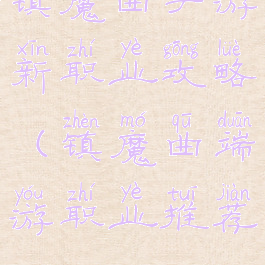 镇魔曲手游
xīn zhí yè gōng lüè
新职业攻略
zhèn mó qū duān
（镇魔曲端
yóu zhí yè tuī jiàn
游职业推荐